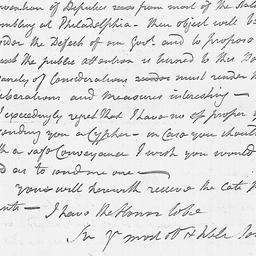 Convention of Deputies from most of the States
assembling at Philadelphia — their object will be
consider the Defects of our Govt. and to propose
the public attention is turned to this
Variety of Considerations must render their
deliberations and measures interesting —
I exceedingly regret that I have no opportunity
sending you a Cypher — in Case you should
with a safe Conveyance I wish you would
good as to send me one —
You will herewith receive the late
— I have the Honor to be
Sir Yr. most obt. & hble Servt